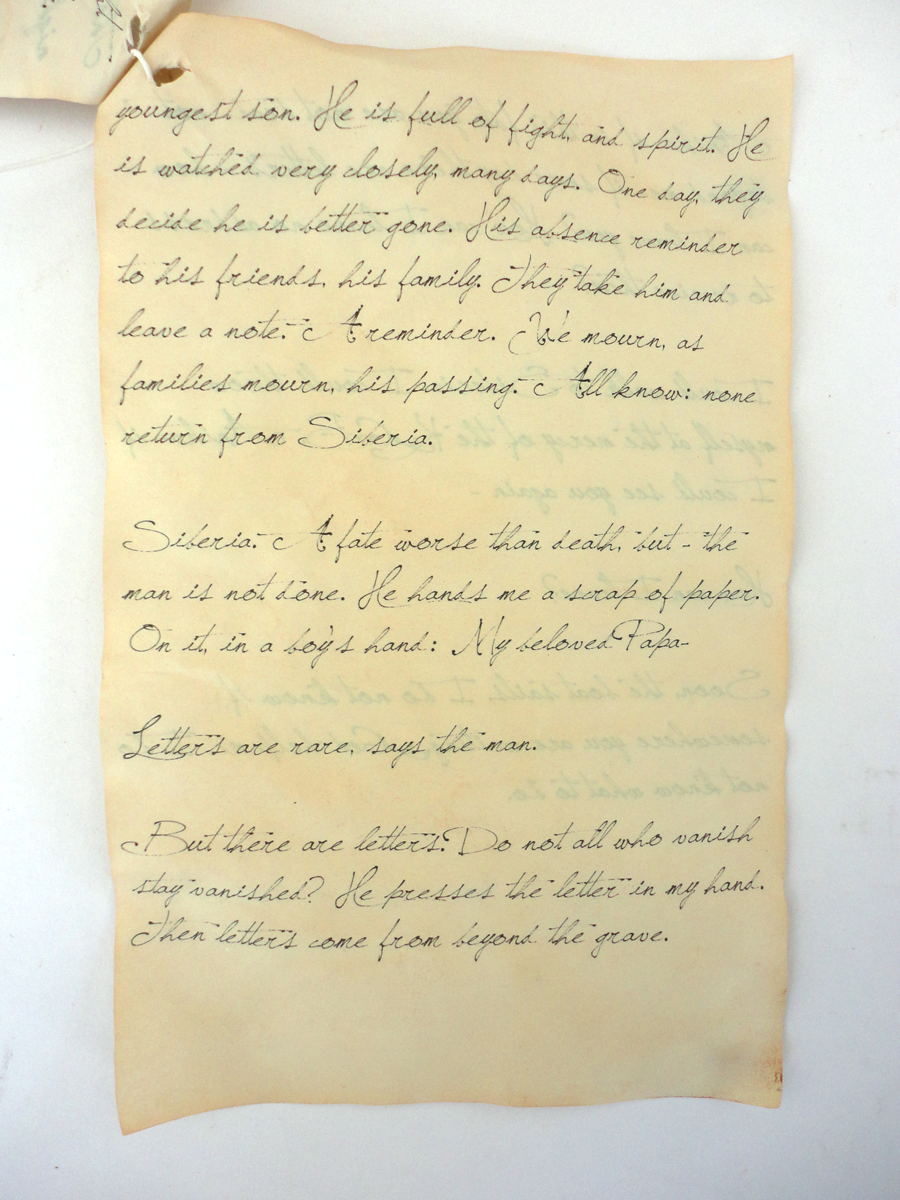 youngest son. He is full of fight, and spirit. He
is watched very closely, many days. One day, they
decide he is better gone. His absence reminder
to his friends, his family. They take him and
leave a note. A reminder. We mourn, as
families mourn, his passing. All know: none
return from Siberia.
Siberia. A fate worse than death, but - the
man is not done. He hands me a scrap of paper.
On it, in a boy's hand: My beloved Papa-
Letters are rare, says the man.
But there are letters. Do not all who vanish
stay vanished? He presses the letter in my hand.
Then letters come from beyond the grave.